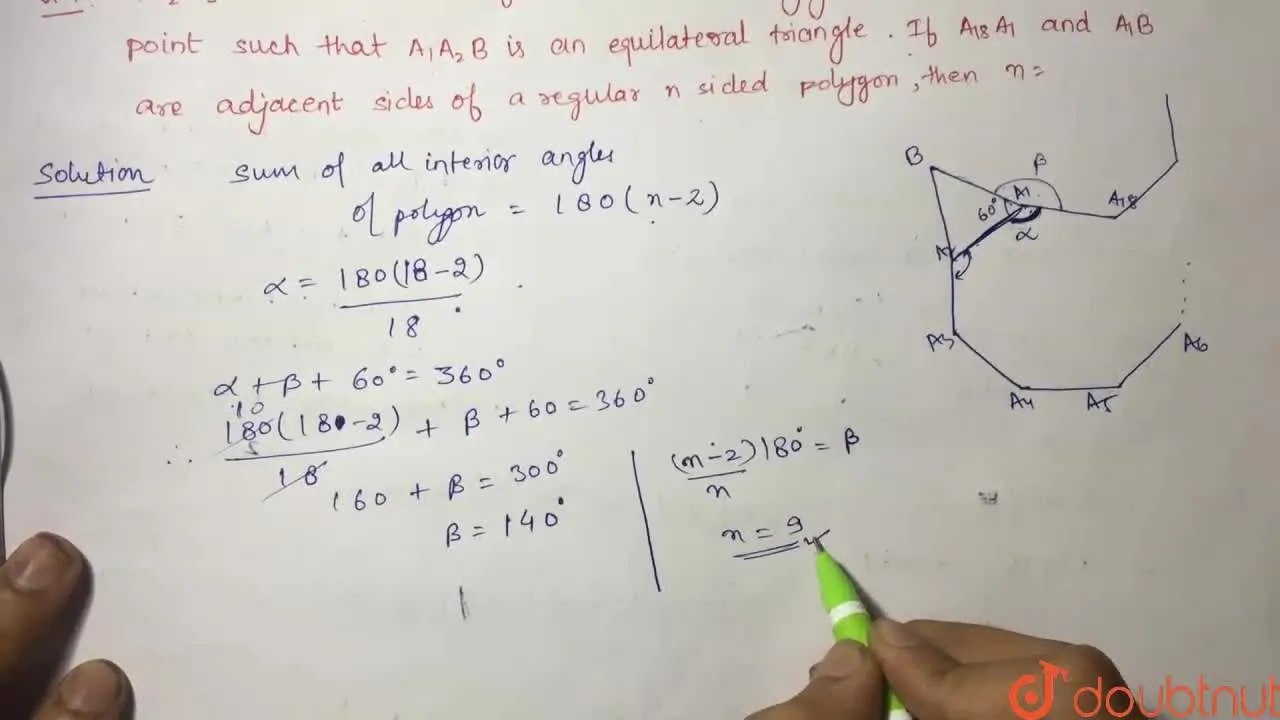 point such that A₁A₂B is an equilateral triangle. If A18A1 and A1B
are adjacent sides of a regular n sided polygon, then n=
Solution sum of all interior angles
of polygon = 180(n-2)
α = 180(18-2)
18
α + β + 60° = 360°
10
∴ 180(18-2) + β + 60 = 360°
18
160 + β = 300°
β = 140°
(n-2)180° = β
n
n = 9
B
β
A1
A18
60°
α
A3
A4
A5
A6
doubtnut